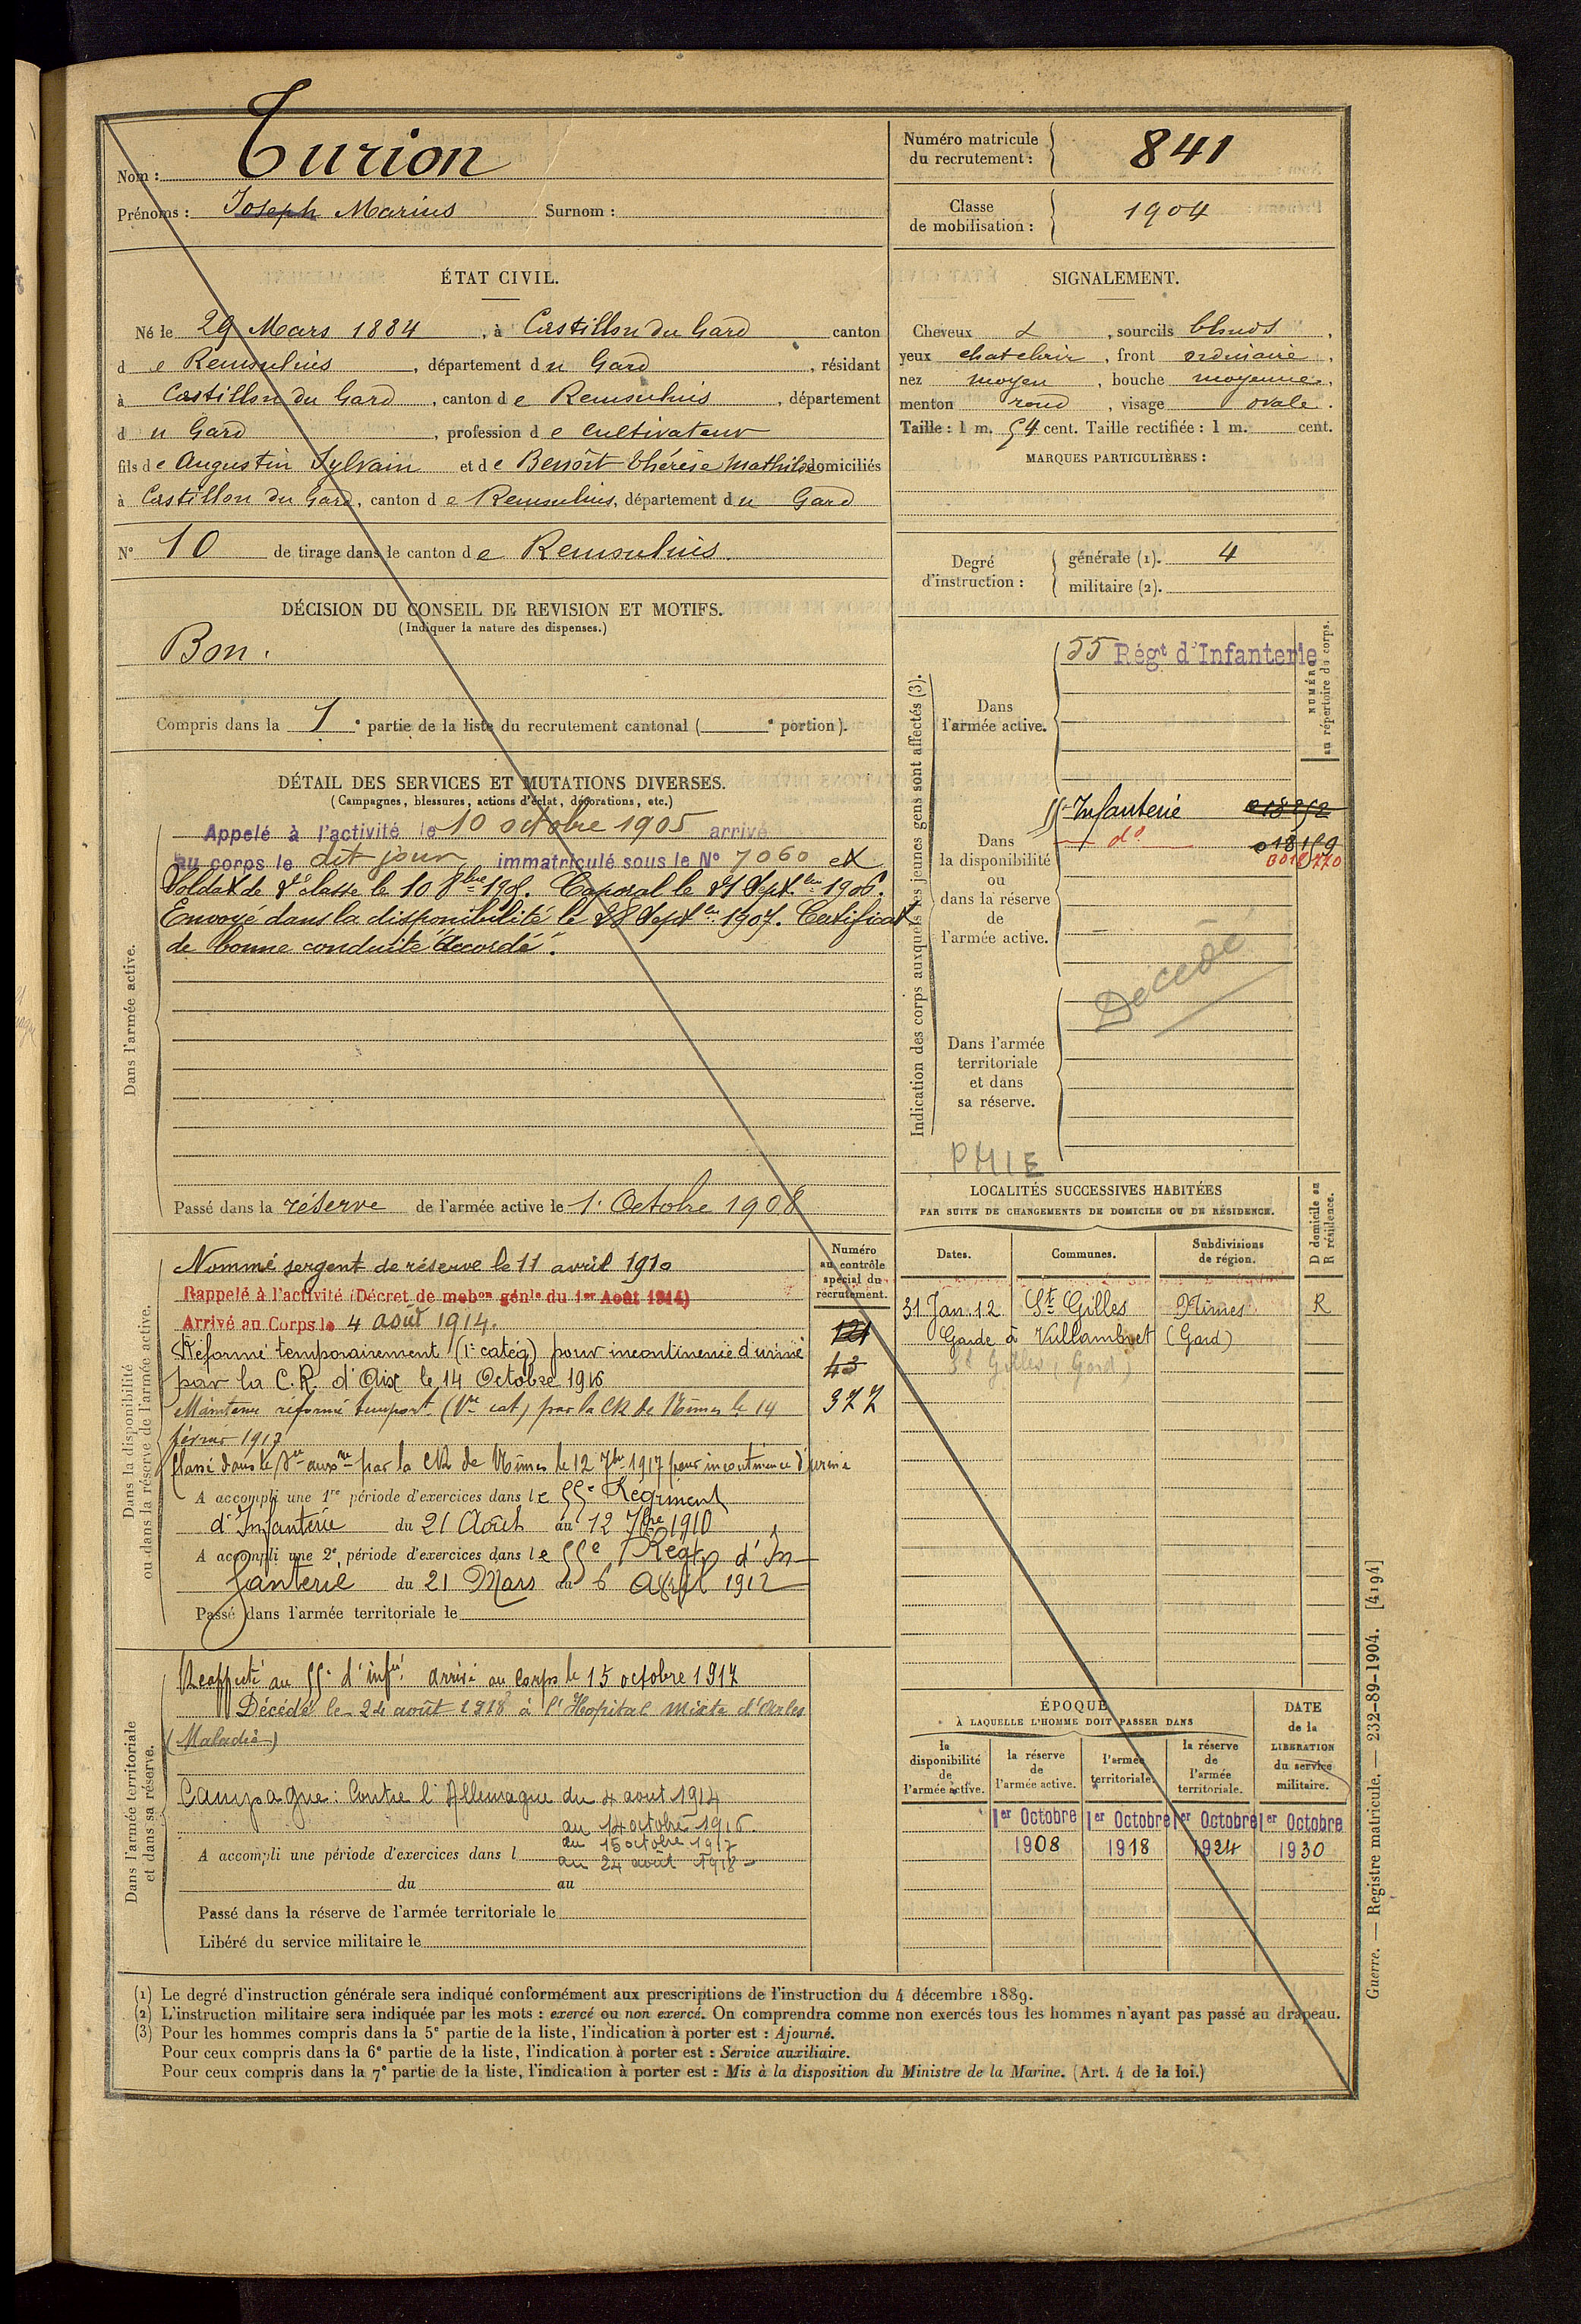 Nom : Turion
Prénoms : Joseph Marius Surnom :
ÉTAT CIVIL.
Né le 29 Mars 1884, à Castillon du Gard canton
de Remoulins, département du Gard, résidant
à Castillon du Gard, canton de Remoulins, département
du Gard, profession de cultivateur
fils de Augustin Sylvain et de Benoît Thérèse Mathilde domiciliés
à Castillon du Gard, canton de Remoulins, département du Gard
N° 10 de tirage dans le canton de Remoulins.
DÉCISION DU CONSEIL DE REVISION ET MOTIFS.
(Indiquer la nature des dispenses.)
Bon.
Compris dans la 1e partie de la liste du recrutement cantonal ( e portion).
DÉTAIL DES SERVICES ET MUTATIONS DIVERSES.
(Campagnes, blessures, actions d'éclat, décorations, etc.)
Dans l'armée active.
Appelé à l'activité le 10 octobre 1905 arrivé
au corps le dit jour immatriculé sous le N° 7060 et
Soldat de 2e classe le 10 8bre 1905. Caporal le 21 Septbre 1906.
Envoyé dans la disponibilité le 28 Septbre 1907. Certificat
de bonne conduite "Accordé".
Passé dans la réserve de l'armée active le 1. Octobre 1908
Dans la disponibilité
ou dans la réserve de l'armée active.
Nommé sergent de réserve le 11 avril 1910
Rappelé à l'activité (Décret de mobon génle du 1er Août 1914)
Arrivé au Corps le 4 août 1914.
Réformé temporairement (1e catég) pour incontinence d'urine
par la C.R. d'Aix le 14 Octobre 1916
Maintenu réformé temport. (1re cat) par la CR de Nîmes le 14
février 1917
Classé dans le Sce auxre par la CR de Nîmes le 12 7bre 1917 pour incontinence d'urine
A accompli une 1re période d'exercices dans le 55e Régiment
d'Infanterie du 21 Août au 12 7bre 1910
A accompli une 2e période d'exercices dans le 55e Régt d'In-
fanterie du 21 Mars au 6 Avril 1912
Passé dans l'armée territoriale le
Numéro
au contrôle
spécial du
recrutement.
121
43
377
Dans l'armée territoriale
et dans sa réserve.
Réaffecté au 55e d'infie arrivé au corps le 15 octobre 1917
Décédé le 24 août 1918 à l'Hopital mixte d'Arles
(Maladie)
Campagne : Contre l'Allemagne du 4 aout 1914
au 14 octobre 1916.
du 15 octobre 1917
A accompli une période d'exercices dans l
au 24 août 1918
du au
Passé dans la réserve de l'armée territoriale le
Libéré du service militaire le
Numéro matricule
du recrutement : 841
Classe
de mobilisation : 1904
SIGNALEMENT.
Cheveux et, sourcils blonds,
yeux chat clair, front ordinaire,
nez moyen, bouche moyenne,
menton rond, visage ovale.
Taille : 1 m. 54 cent. Taille rectifiée : 1 m. cent.
MARQUES PARTICULIÈRES :
Degré
d'instruction :
générale (1). 4
militaire (2).
Indication des corps auxquels les jeunes gens sont affectés (3).
NUMÉRO
au répertoire du corps.
Dans
l'armée active.
55 Régt d'Infanterie
Dans
la disponibilité
ou
dans la réserve
de
l'armée active.
55e Infanterie
do 018159
Décédé
Dans l'armée
territoriale
et dans
sa réserve.
PHIE
LOCALITÉS SUCCESSIVES HABITÉES
PAR SUITE DE CHANGEMENTS DE DOMICILE OU DE RÉSIDENCE.
D domicile ou
R résidence.
Dates. Communes. Subdivisions
de région.
31 Jan. 12 St Gilles Nîmes R
Garde à Villambuet (Gard)
St Gilles (Gard)
ÉPOQUE
À LAQUELLE L'HOMME DOIT PASSER DANS
la
disponibilité
de
l'armée active.
la réserve
de
l'armée active.
l'armée
territoriale.
la réserve
de
l'armée
territoriale.
DATE
de la
LIBÉRATION
du service
militaire.
1er Octobre 1er Octobre 1er Octobre 1er Octobre
1908 1918 1924 1930
(1) Le degré d'instruction générale sera indiqué conformément aux prescriptions de l'instruction du 4 décembre 1889.
(2) L'instruction militaire sera indiquée par les mots : exercé ou non exercé. On comprendra comme non exercés tous les hommes n'ayant pas passé au drapeau.
(3) Pour les hommes compris dans la 5e partie de la liste, l'indication à porter est : Ajourné.
Pour ceux compris dans la 6e partie de la liste, l'indication à porter est : Service auxiliaire.
Pour ceux compris dans la 7e partie de la liste, l'indication à porter est : Mis à la disposition du Ministre de la Marine. (Art. 4 de la loi.)
Guerre. — Registre matricule. — 232-89-1904. [4194]